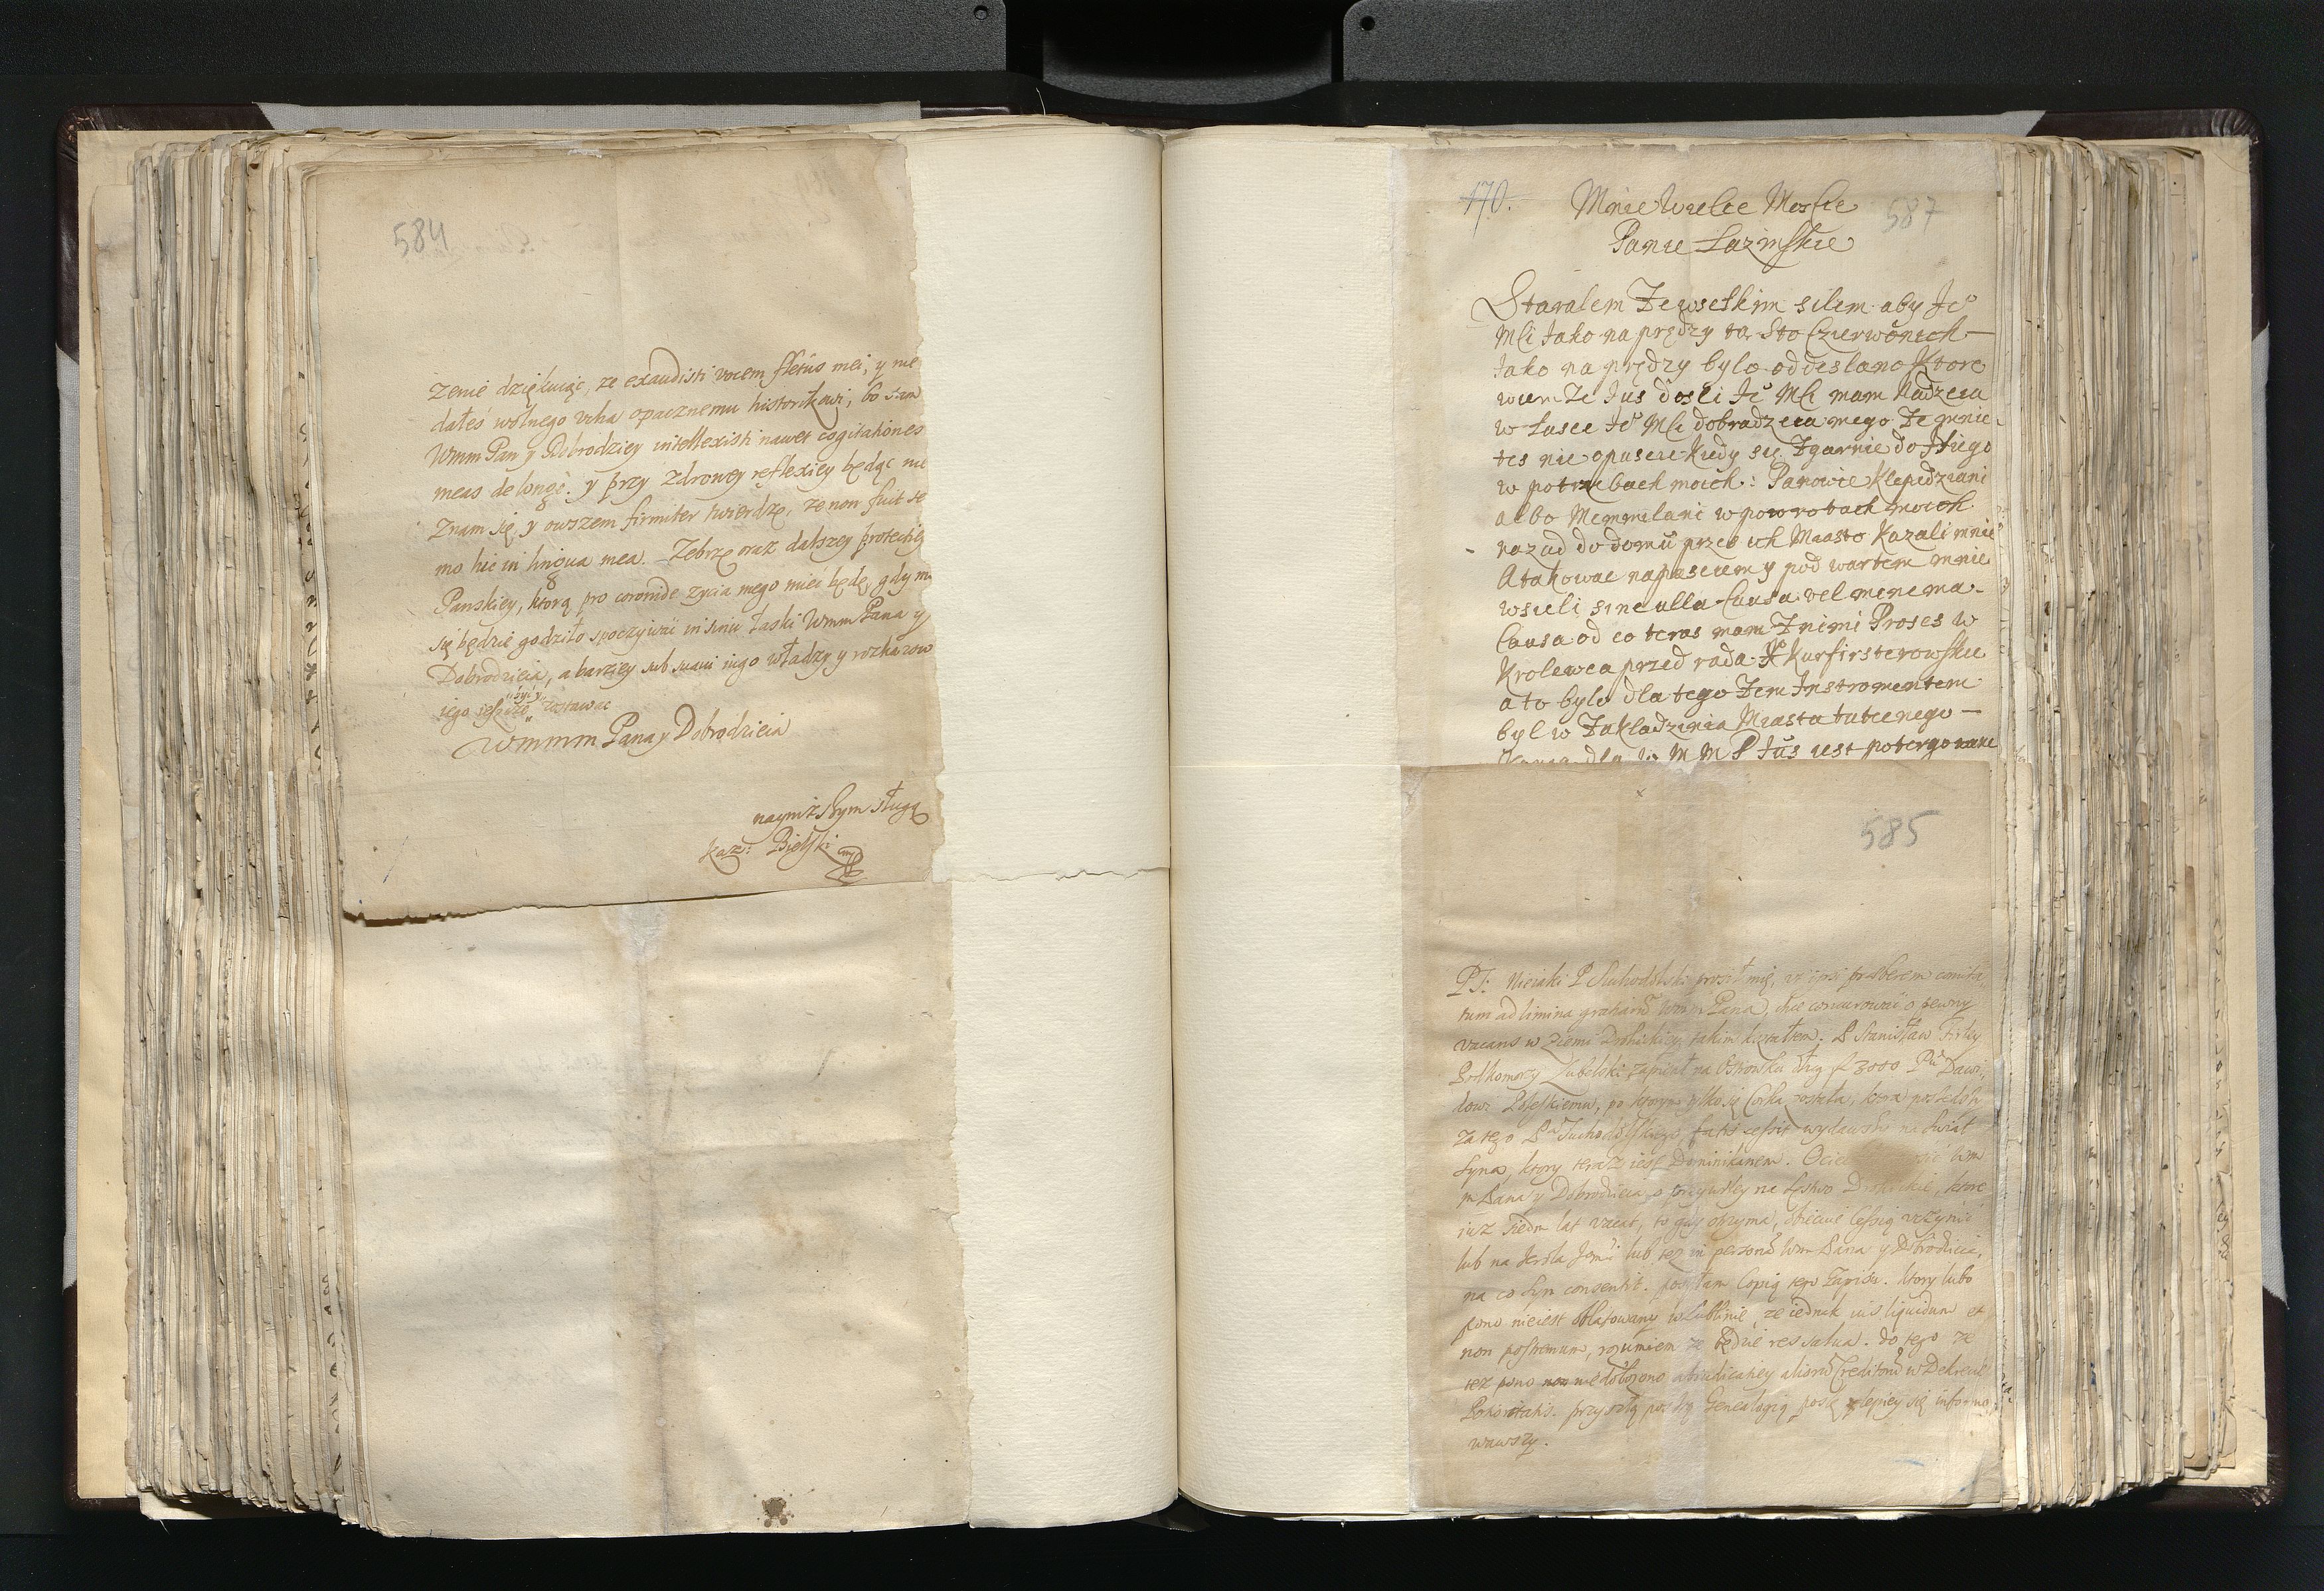 584
żenie dziękuiąc, ze exaudisti vocem fletus mei, y nie
dałeś wolnego ucha opacznemu historikowi, bo sam
Wmm Pan y Dobrodziey intellexisti nawet cogitationes
meas de longe. y przy zdrowey reflexiey będąc nie
znam się, y owszem firmiter twierdzę, ze non fuit se
mo hic in lingua mea. Zebrzę oraz dalszey protectiy
Panskiey, ktorą pro coronide zycia mego mieć będę, gdy mi
się będzie godziło spoczywać in sinu łaski Wmm Pana y
Dobrodzieia, a barziey sub suavi iugo władzy y rozkazow
iego zostawac
życ y
Wmmm Pana y Dobrodzieia
naynizszym sługą
Kaz: Bielski
170.
587
Mnie Wielce Moscie
Panie Lazinskie
Staralem Ze wselkim silem aby Je
MCi Jako na prędzy ta Sto Czerwonech
Jako na prędzy bylo oddeslano Ktore
wiem Ze Jus dosli Je MCi mam Nadzeia
w Lasce Je MCi dobradzeia mego Ze mnie
tes nie opuscie Kiedy sie Zgarnie do Niego
w potrzebach moich: Panowie Klepedziani
albo Memmelani w powrotach moich
nazad do domu przes ich Miasto Kazali mnie
Atakowac napasciem y pod wartem mnie
wsieli sine ulla Causa vel menema
Causa od co teras mam Z nimi Proses w
Krolewca przed rada Kurfirsterowskie
a to bylo dla tego Zem Instromentem
byl w Zakladzenia Miasta tutecnego
dla M M P Jus iest potergowane
585
PS: Nieiaki P Suchodolski prosił mię,
tum ad limina gratiarum Wmm Pana, chce concurować o pewny
vacans w Ziemi Drohickiey takim kształtem. P Stanisław Firley
Podkomorzy Lubelski zapisał na Ostrowku dług f 3000 Pu Dawi
dowi, po ktorym tylko się Corka została, ktora poszedszy
za tego Pa Suchodolskiego fatis cessit wydawszy na Swiat
Syna, ktory teraz iest Dominikanem. Ociec Wm
m Pana y Dobrodzieia o przywiley na, ktore
iuz siedm lat vacat, to gdy otrzyma, obiecuie Cessią uczynic
lub na Krola Jmci lub tez in personam Wm Pana y Dobrodzieia,
na co Syn consentit. posyłam Copią tego Zapisu. ktory lubo
pono nieiest oblatowany w Lublinie, ze iednak ius liquidum et
non postremum, rozumiem ze będzie res salva. do tego ze
tez pono nie dołozono abiudicatiey aliorum Creditorum w Dekrecie
Potioritatis. przyszłą pocztą Genealogią poslę lepiey się informo
wawszy.